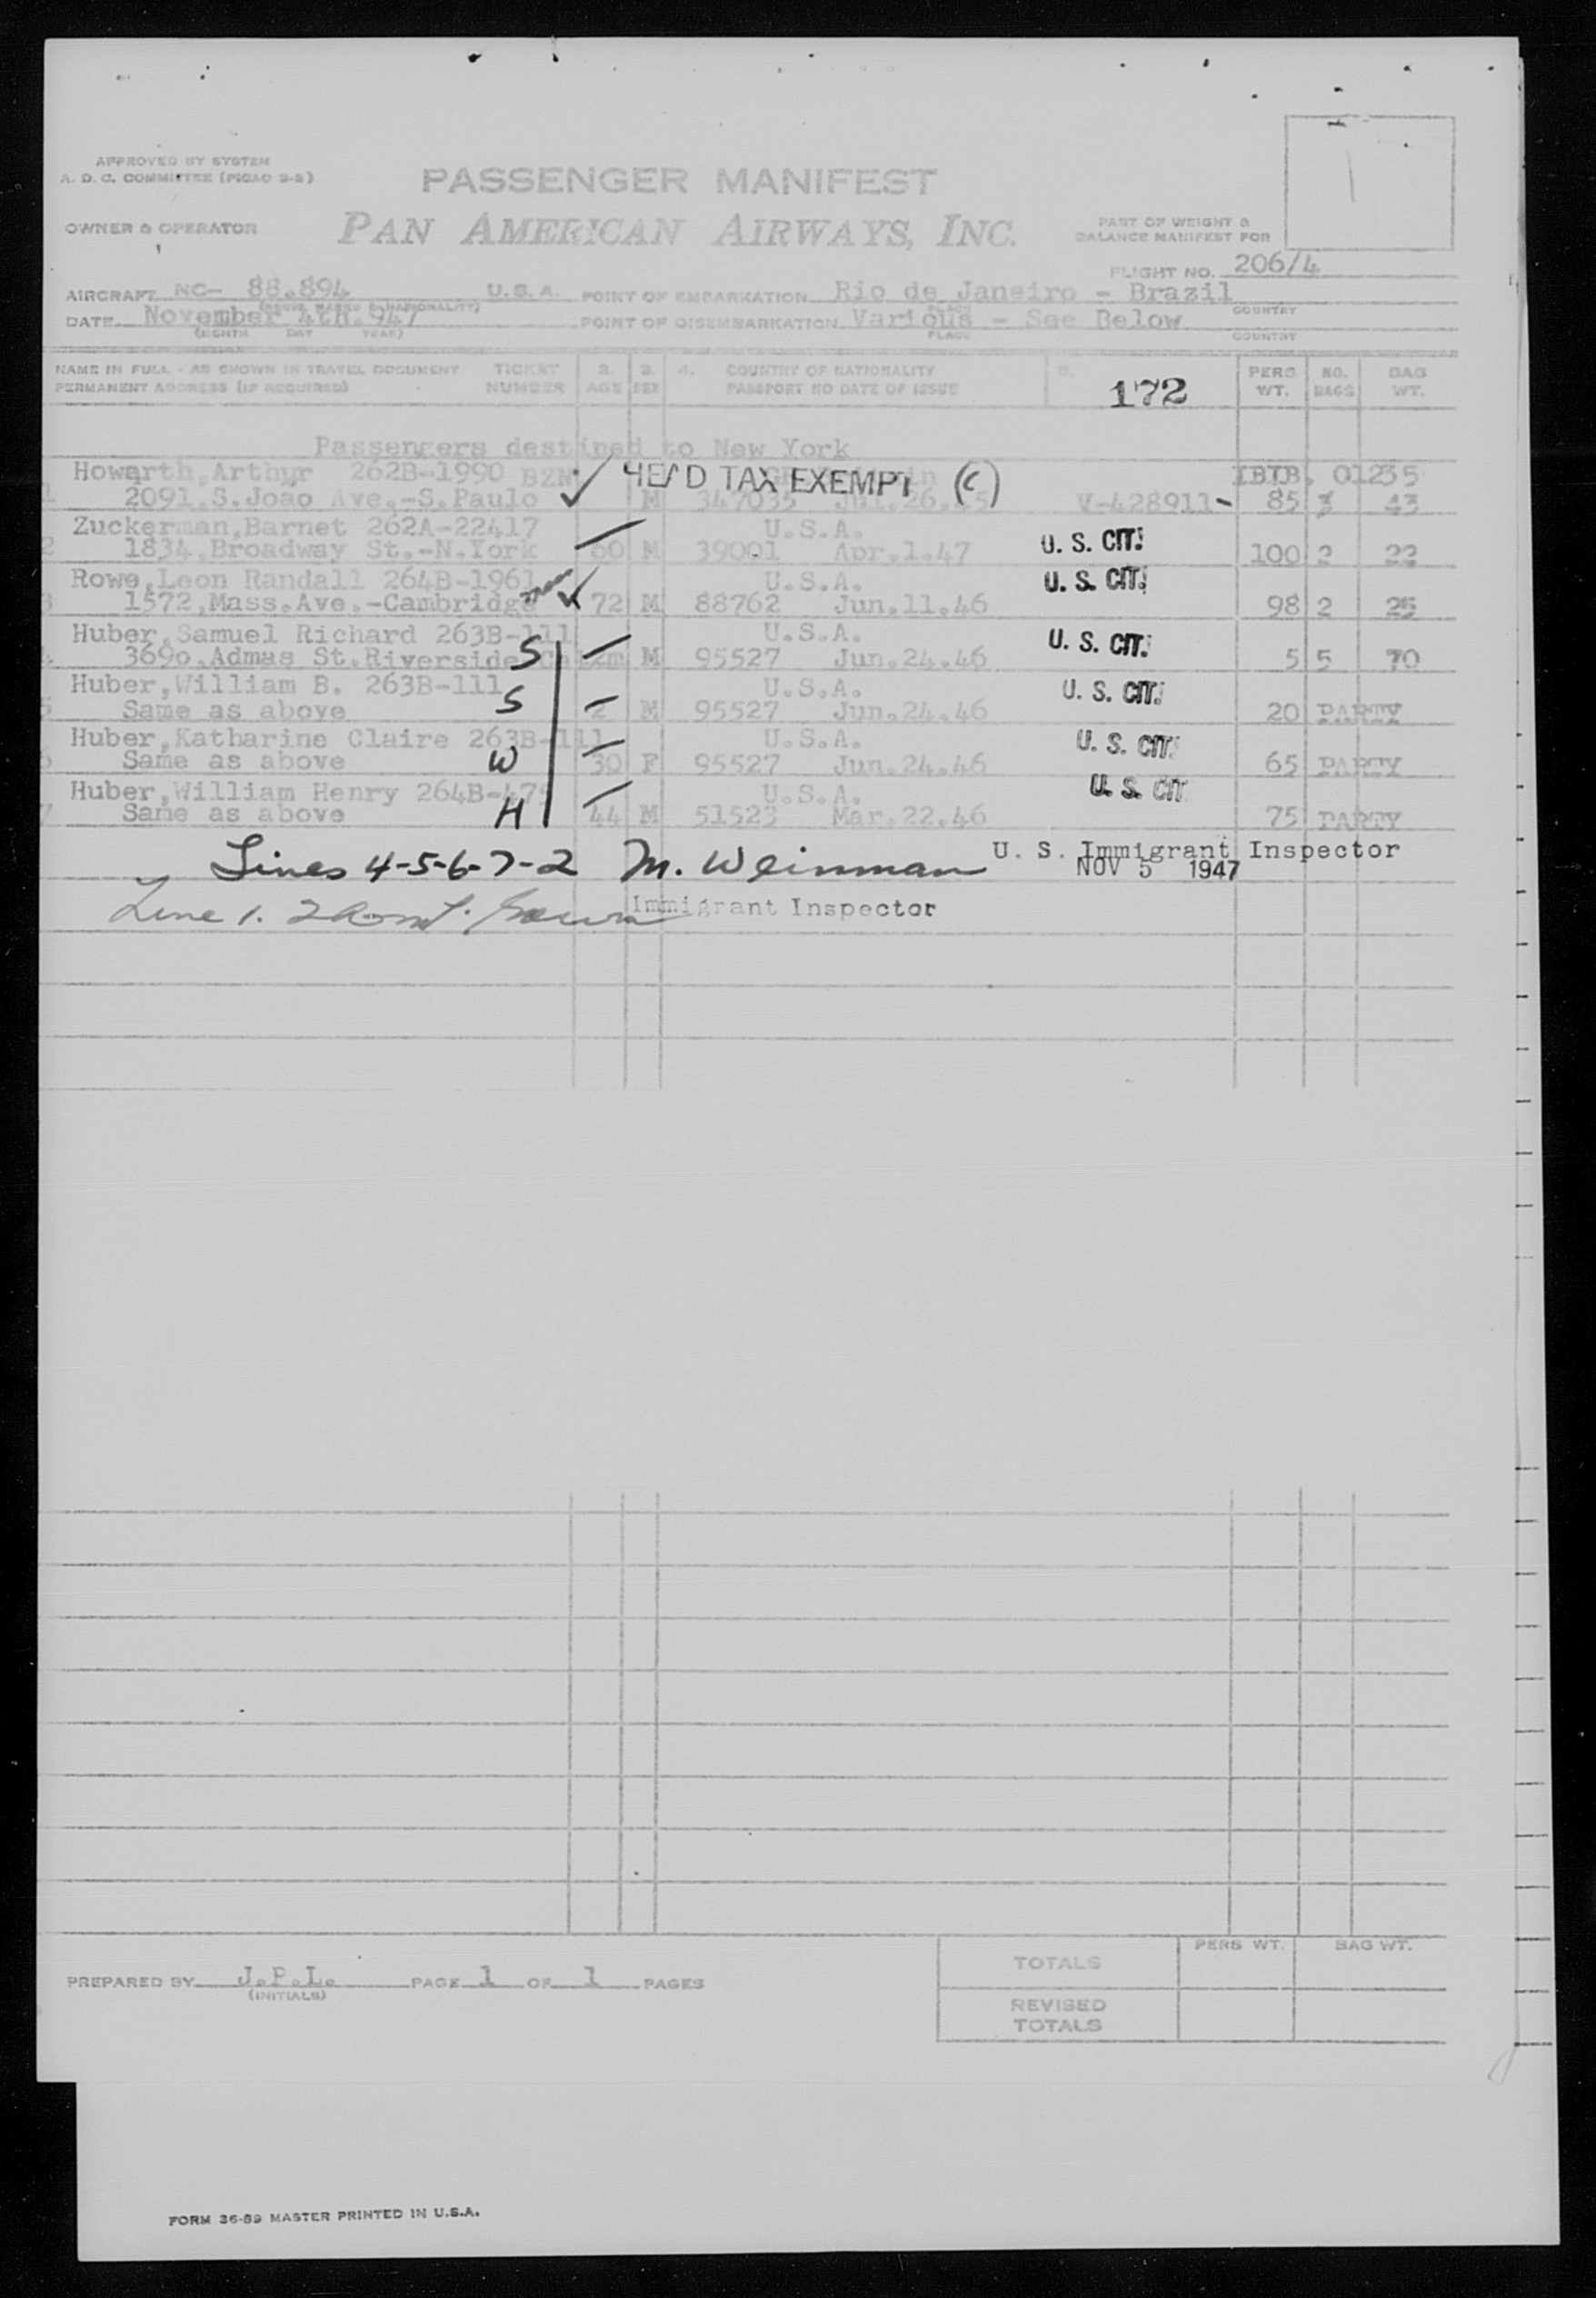 APPROVED BY SYSTEM
A. D. C. COMMITTEE (PICAO 2-2)
PASSENGER MANIFEST
OWNER & OPERATOR
PAN AMERICAN AIRWAYS, INC.
PART OF WEIGHT &
BALANCE MANIFEST FOR
FLIGHT NO. 206/4
AIRCRAFT NC- 88.894 U.S.A. POINT OF EMBARKATION Rio de Janeiro - Brazil
DATE November 4th. 947 POINT OF DISEMBARKATION Various - See Below COUNTRY
(MONTH DAY YEAR) PLACE COUNTRY
NAME IN FULL - AS SHOWN IN TRAVEL DOCUMENT TICKET 2. 3. 4. COUNTRY OF NATIONALITY 5. PERS NO. BAG
PERMANENT ADDRESS (IF REQUIRED) NUMBER AGE SEX PASSPORT NO DATE OF ISSUE 172 WT. BAGS WT.
Passengers destined to New York
Howarth, Arthur 262B-1990 BZN HEAD TAX EXEMPT (C) IBTB. 01235
1 2091.S.Joao Ave.-S.Paulo M 347035 V-428911- 85 43
Zuckerman,Barnet 262A-22417 U.S.A.
2 1834.Broadway St.-N.York 60 M 39001 Apr.1.47 U. S. CIT. 100 2 22
Rowe,Leon Randall 264B-1961 U.S.A. U. S. CIT.
3 1572,Mass.Ave.-Cambridge 72 M 88762 Jun.11.46 98 2 25
Huber,Samuel Richard 263B-111 U.S.A. U. S. CIT.
4 3690.Admas St.Riverside S M 95527 Jun.24.46 5 5 70
Huber,William B. 263B-111 U.S.A. U. S. CIT.
5 Same as above S 2 M 95527 Jun.24.46 20 PARTY
Huber,Katharine Claire 263B-111 U.S.A. U. S. CIT.
6 Same as above W 30 F 95527 Jun.24.46 65 PARTY
Huber,William Henry 264B-475 U.S.A. U. S. CIT
7 Same as above H 44 M 51523 Mar.22.46 75 PARTY
Lines 4-5-6-7-2 M. Weinman U. S. Immigrant Inspector
NOV 5 1947
Line 1. Immigrant Inspector
PREPARED BY J.P.L. PAGE 1 OF 1 PAGES
(INITIALS)
PERS WT. BAG WT.
TOTALS
REVISED
TOTALS
FORM 36-89 MASTER PRINTED IN U.S.A.